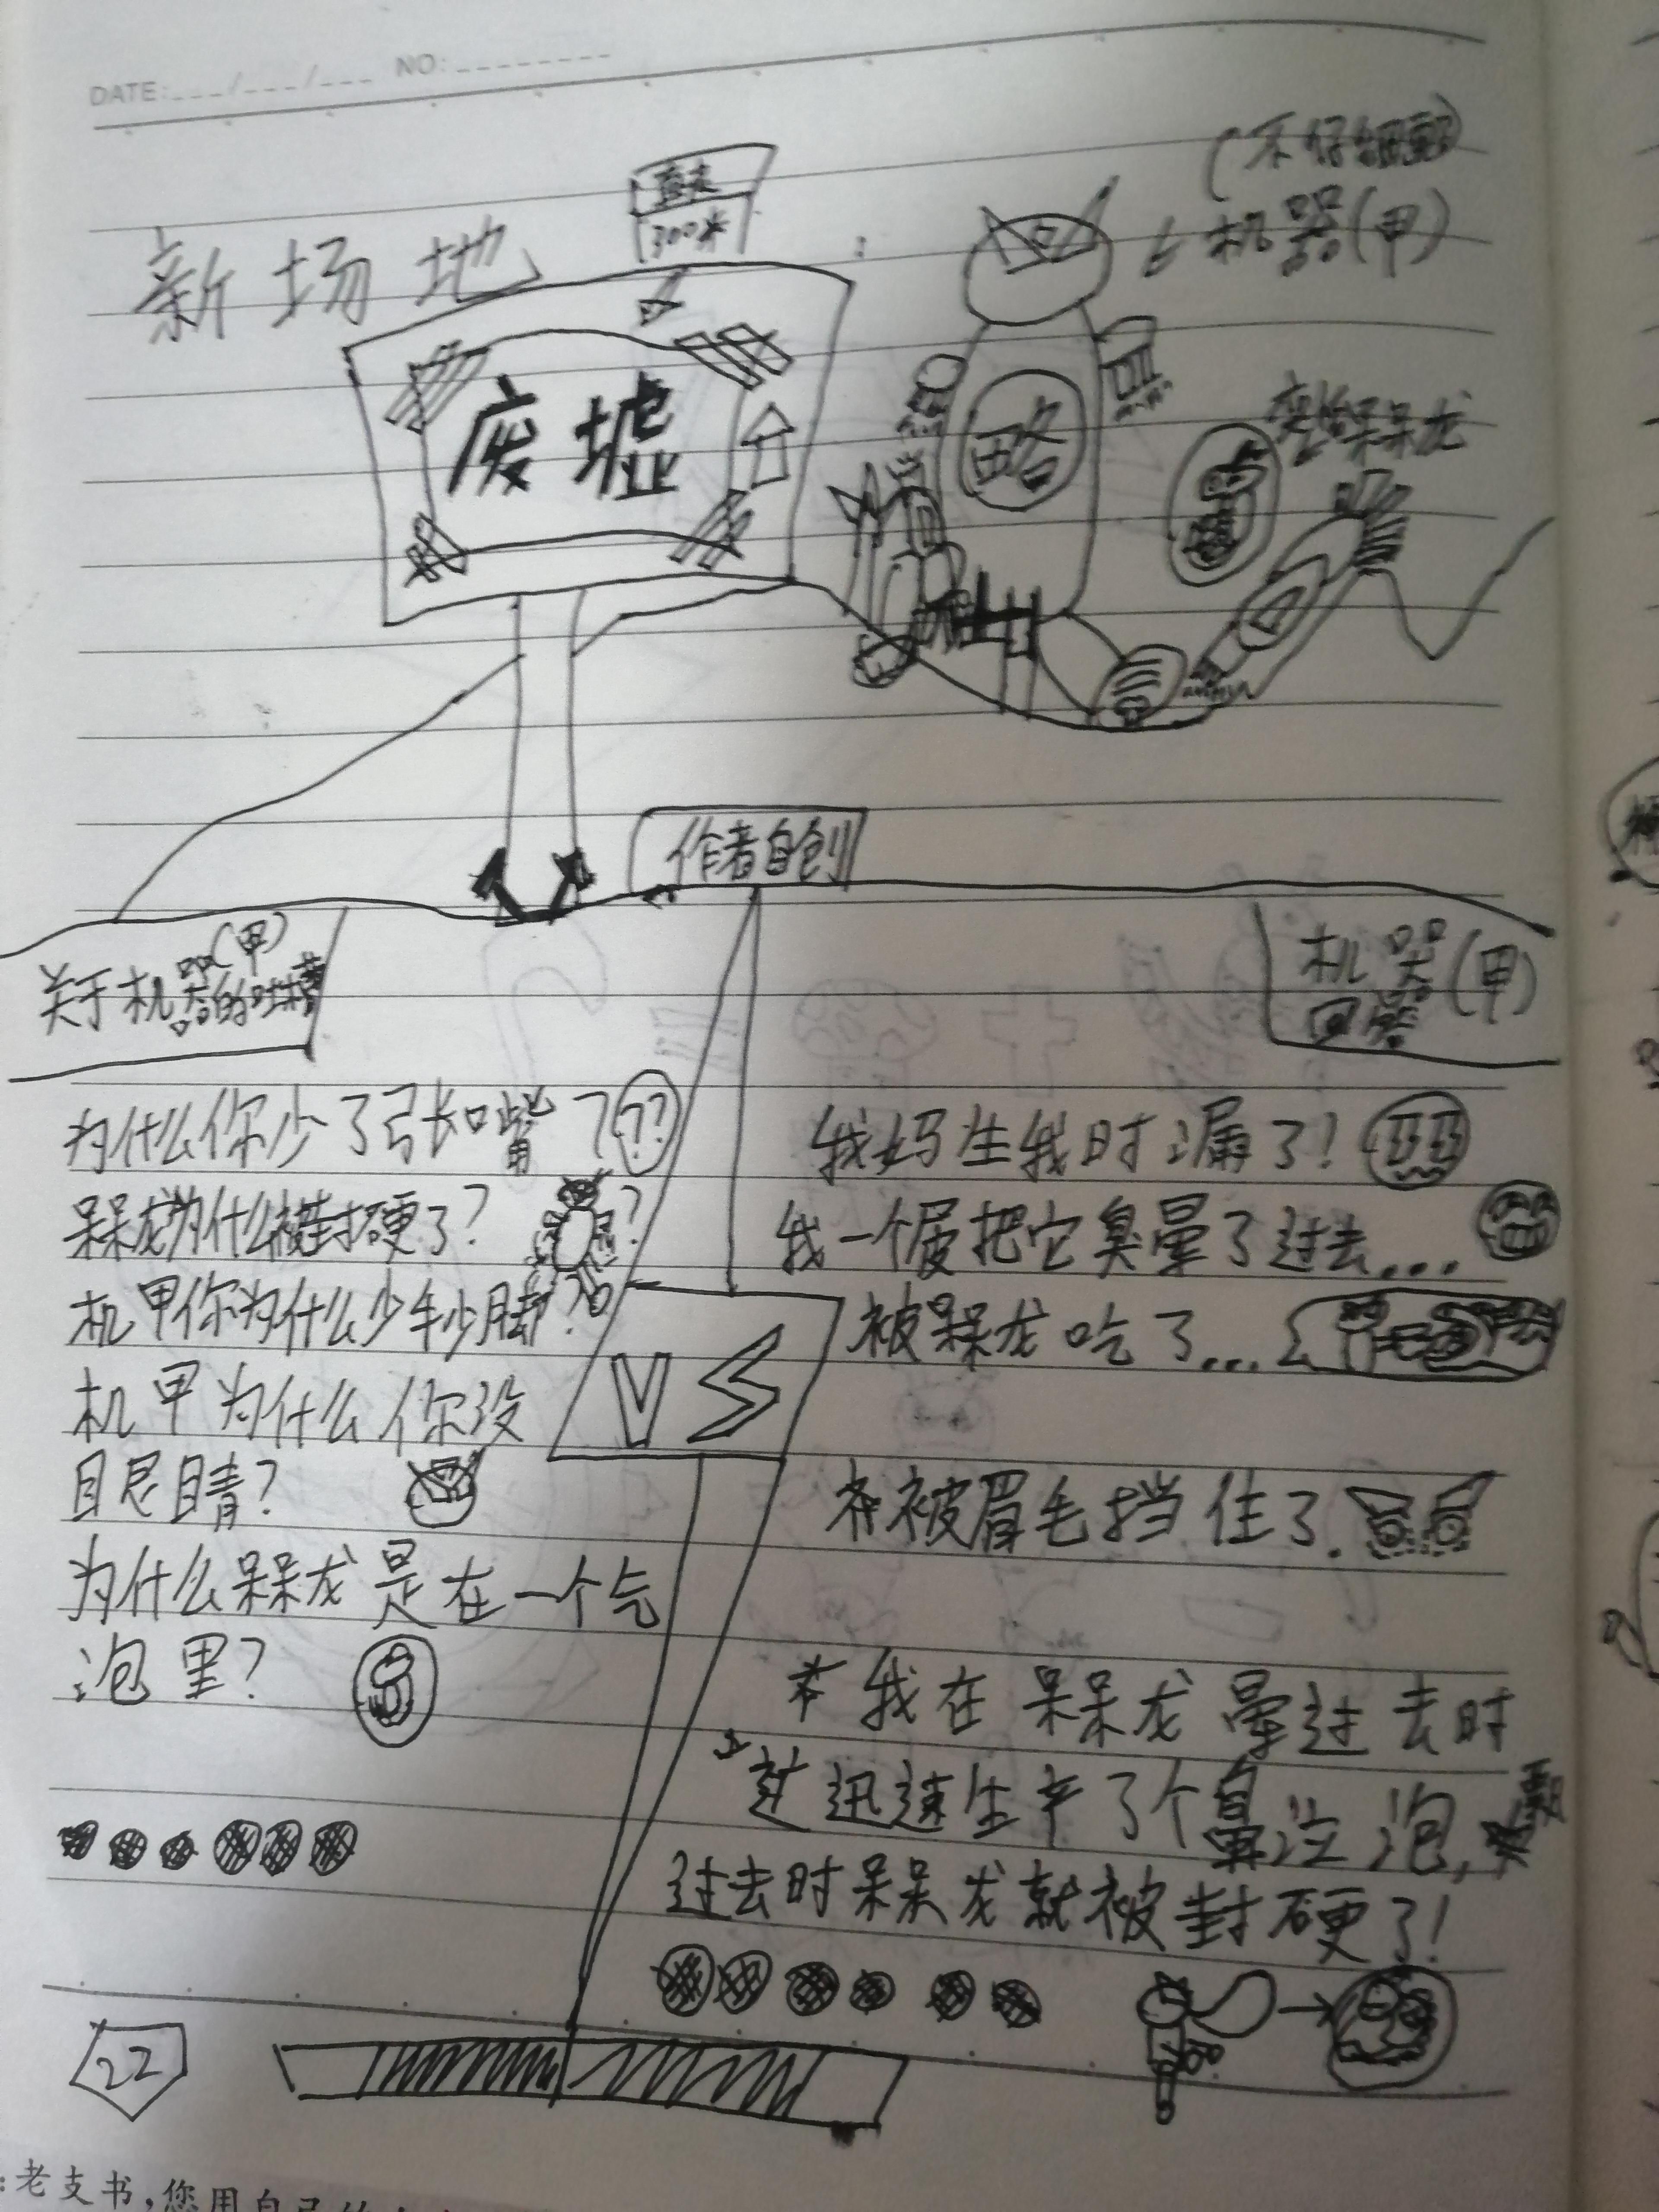 DATE:___/___/___ NO:________
(不仔细
新场地
直走
300米
机器(甲)
废墟
略
呆呆龙
作者自创
关于机器(甲)
的吐槽
机器(甲)
回答
为什么你少了张嘴???
我妈生我时漏了!
呆呆龙为什么被封硬了??
我一个屁把它臭晕了过去...
机甲你为什么少手少脚?
被呆呆龙吃了...
VS
机甲为什么你没
眼睛?
被眉毛挡住了.
为什么呆呆龙是在一个气
泡里?
我在呆呆龙晕过去时
迅速生产了个鼻涕泡,
过去时呆呆龙就被封硬了!
22
:老支书,您用自己的